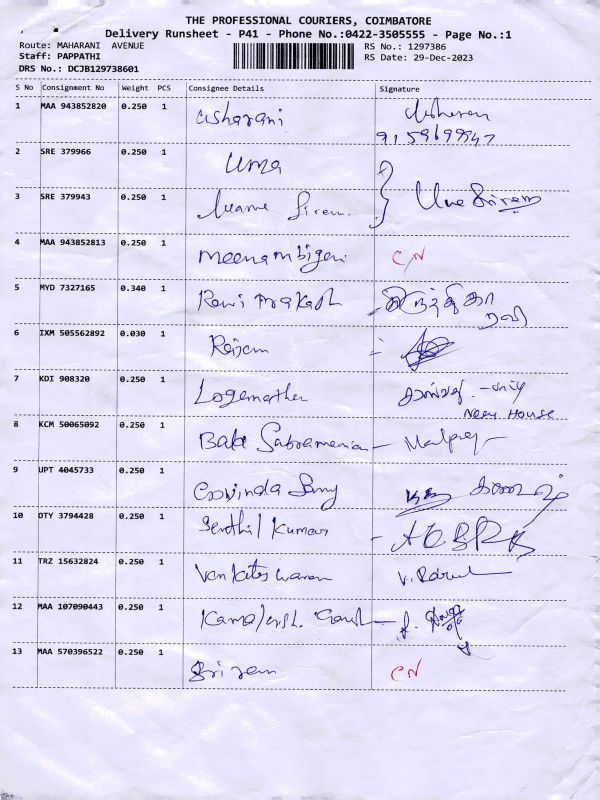 THE PROFESSIONAL COURIERS, COIMBATORE
Delivery Runsheet - P41 - Phone No.:0422-3505555 - Page No.:1
Route: MAHARANI AVENUE
RS No.: 1297386
Staff: PAPPATHI
RS Date: 29-Dec-2023
DRS No.: DCJB129738601
S No Consignment No Weight PCS Consignee Details Signature
1 MAA 943852820 0.250 1 Usharani
2 SRE 379966 0.250 1 Uma
3 SRE 379943 0.250 1
4 MAA 943852813 0.250 1 Meenambigai CN
5 MYD 7327165 0.340 1 Ravi Prakash
ரவி
6 IXM 505562892 0.030 1
7 KDI 908320 0.250 1 Loganathan
Near House
8 KCM 50065092 0.250 1 Bala Subramania
9 UPT 4045733 0.250 1 Govinda Samy
10 OTY 3794428 0.250 1 Senthil Kumar
11 TRZ 15632824 0.250 1 Venkateswaran
12 MAA 107090443 0.250 1
13 MAA 570396522 0.250 1 Sriram CN